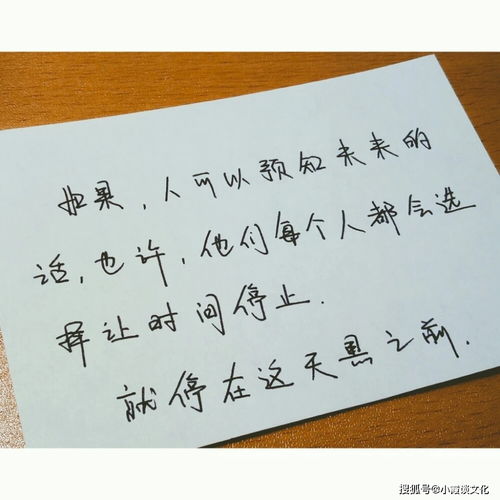 如果,人可以预知未来的
话,也许,他们每个人都会选
择让时间停止.
就停在这天黑之前.
搜狐号@小霞谈文化